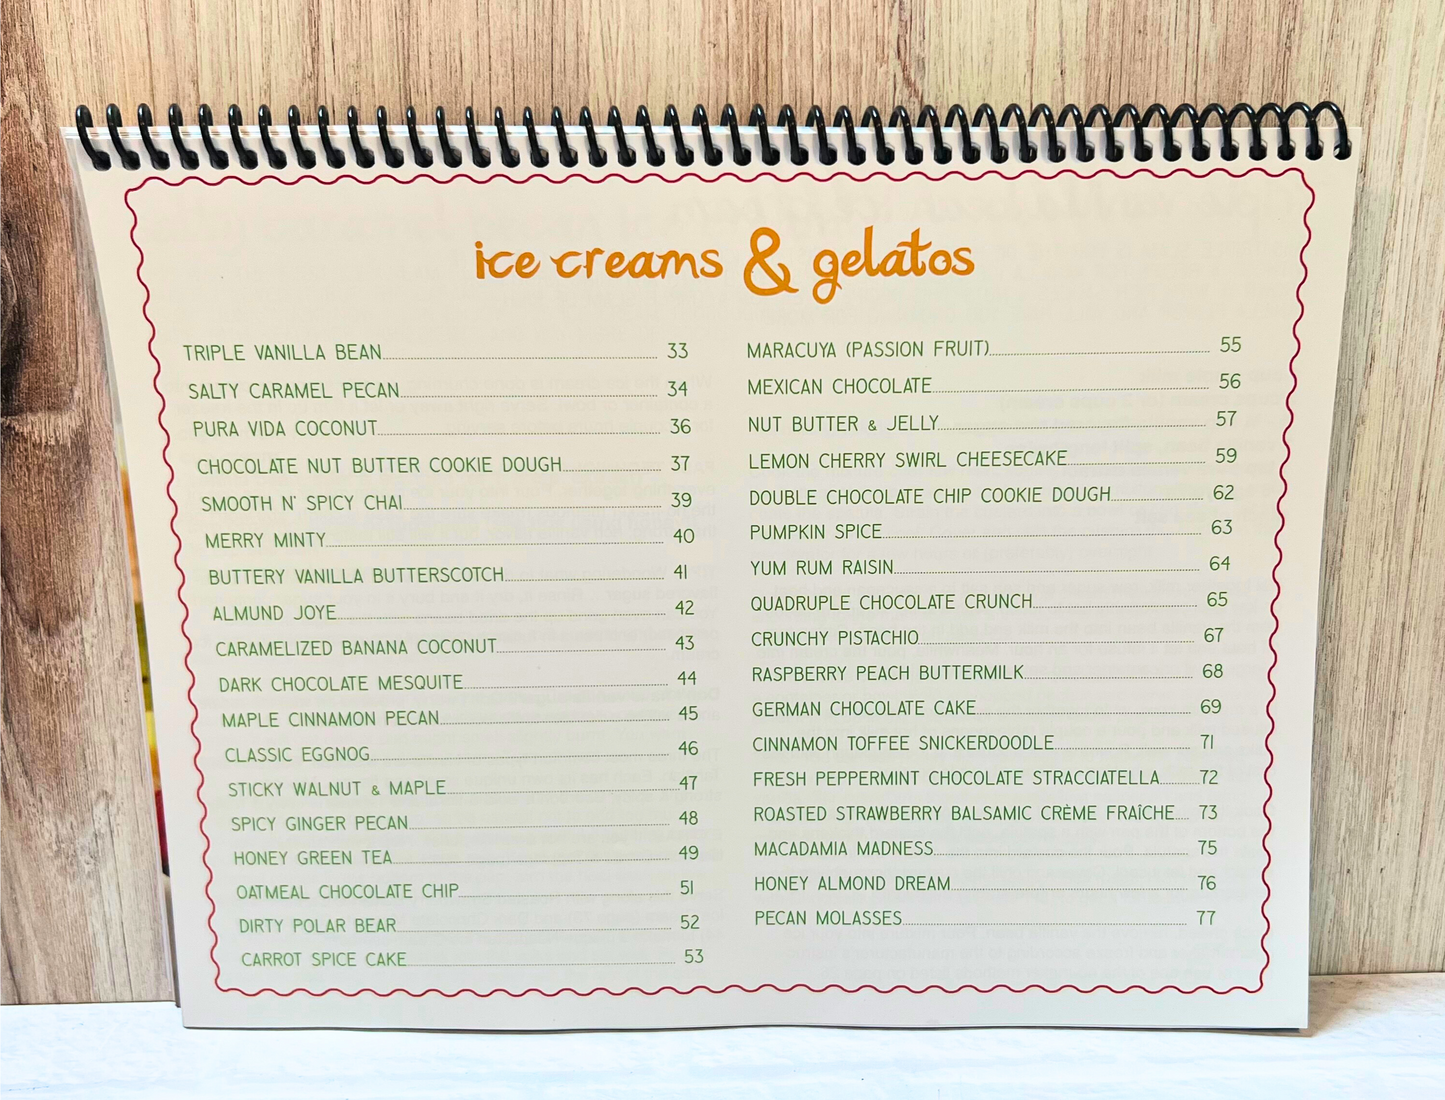 ice creams & gelatos
TRIPLE VANILLA BEAN 33
SALTY CARAMEL PECAN 34
PURA VIDA COCONUT 36
CHOCOLATE NUT BUTTER COOKIE DOUGH 37
SMOOTH N' SPICY CHAI 39
MERRY MINTY 40
BUTTERY VANILLA BUTTERSCOTCH 41
ALMUND JOYE 42
CARAMELIZED BANANA COCONUT 43
DARK CHOCOLATE MESQUITE 44
MAPLE CINNAMON PECAN 45
CLASSIC EGGNOG 46
STICKY WALNUT & MAPLE 47
SPICY GINGER PECAN 48
HONEY GREEN TEA 49
OATMEAL CHOCOLATE CHIP 51
DIRTY POLAR BEAR 52
CARROT SPICE CAKE 53
MARACUYA (PASSION FRUIT) 55
MEXICAN CHOCOLATE 56
NUT BUTTER & JELLY 57
LEMON CHERRY SWIRL CHEESECAKE 59
DOUBLE CHOCOLATE CHIP COOKIE DOUGH 62
PUMPKIN SPICE 63
YUM RUM RAISIN 64
QUADRUPLE CHOCOLATE CRUNCH 65
CRUNCHY PISTACHIO 67
RASPBERRY PEACH BUTTERMILK 68
GERMAN CHOCOLATE CAKE 69
CINNAMON TOFFEE SNICKERDOODLE 71
FRESH PEPPERMINT CHOCOLATE STRACCIATELLA 72
ROASTED STRAWBERRY BALSAMIC CRÈME FRAÎCHE 73
MACADAMIA MADNESS 75
HONEY ALMOND DREAM 76
PECAN MOLASSES 77